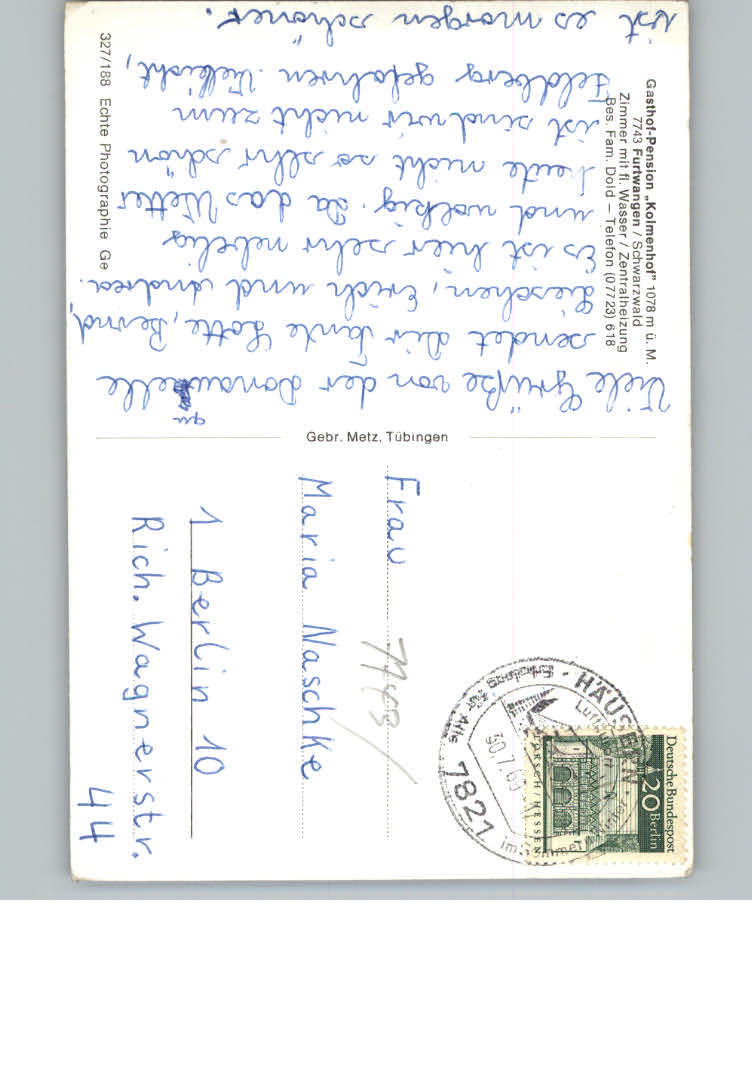 Gasthof-Pension „Kolmenhof" 1078 m ü. M.
7743 Furtwangen / Schwarzwald
Zimmer mit fl. Wasser / Zentralheizung
Bes. Fam. Dold – Telefon (07723) 618
Viele Grüße von der Donauquelle
sendet dir Tante Lotte, Bernd,
Lieschen, Erich und Andrea.
Es ist hier sehr nebelig
und wolkig. Da das Wetter
heute nicht so sehr schön
ist sind wir nicht zum
Feldberg gefahren. Vielleicht,
ist es morgen schöner.
327/188 Echte Photographie Ge
Gebr. Metz, Tübingen
Frau
Maria Naschke
1 Berlin 10
Rich. Wagnerstr.
44
7743
Deutsche Bundespost
20 Berlin
LORSCH/HESSEN
7821 HÄUSERN
30.7.
im Sommer